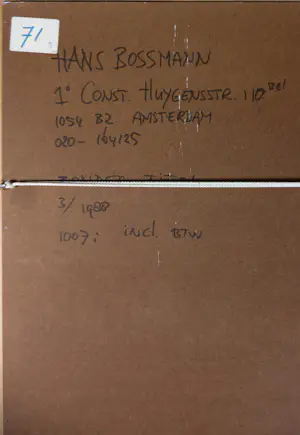 71.
HANS BOSSMANN
1e CONST. HUYGENSSTR. 110
1054 BZ AMSTERDAM
020- 164125
ZONDER TITEL
3/1988
incl. BTW